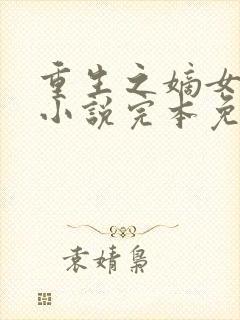 重生之嫡女
小说完本免
袁婧枭